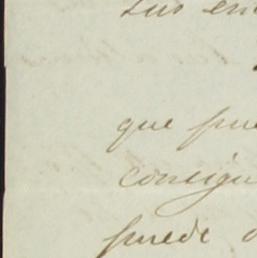 sus en
que pue
consigu
puede